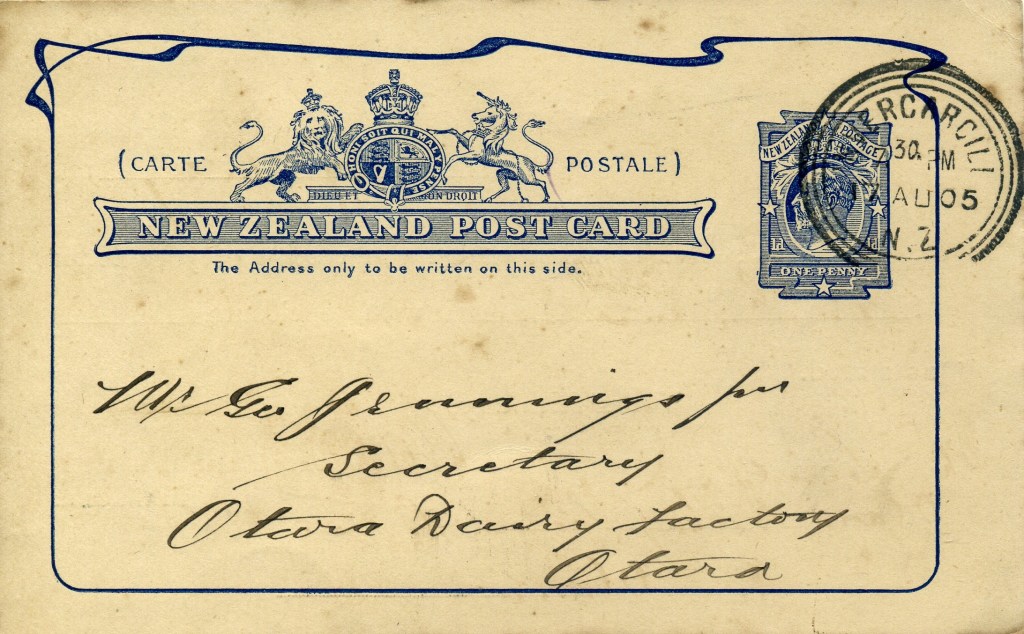 (CARTE POSTALE)
HONI SOIT QUI MAL Y PENSE
DIEU ET MON DROIT
NEW ZEALAND POST CARD
The Address only to be written on this side.
NEW ZEALAND POSTAGE
1d 1d
ONE PENNY
ERCARGILL
30 PM
AU 05
N.Z
Mr Geo Jennings jnr
Secretary
Otara Dairy Factory
Otara